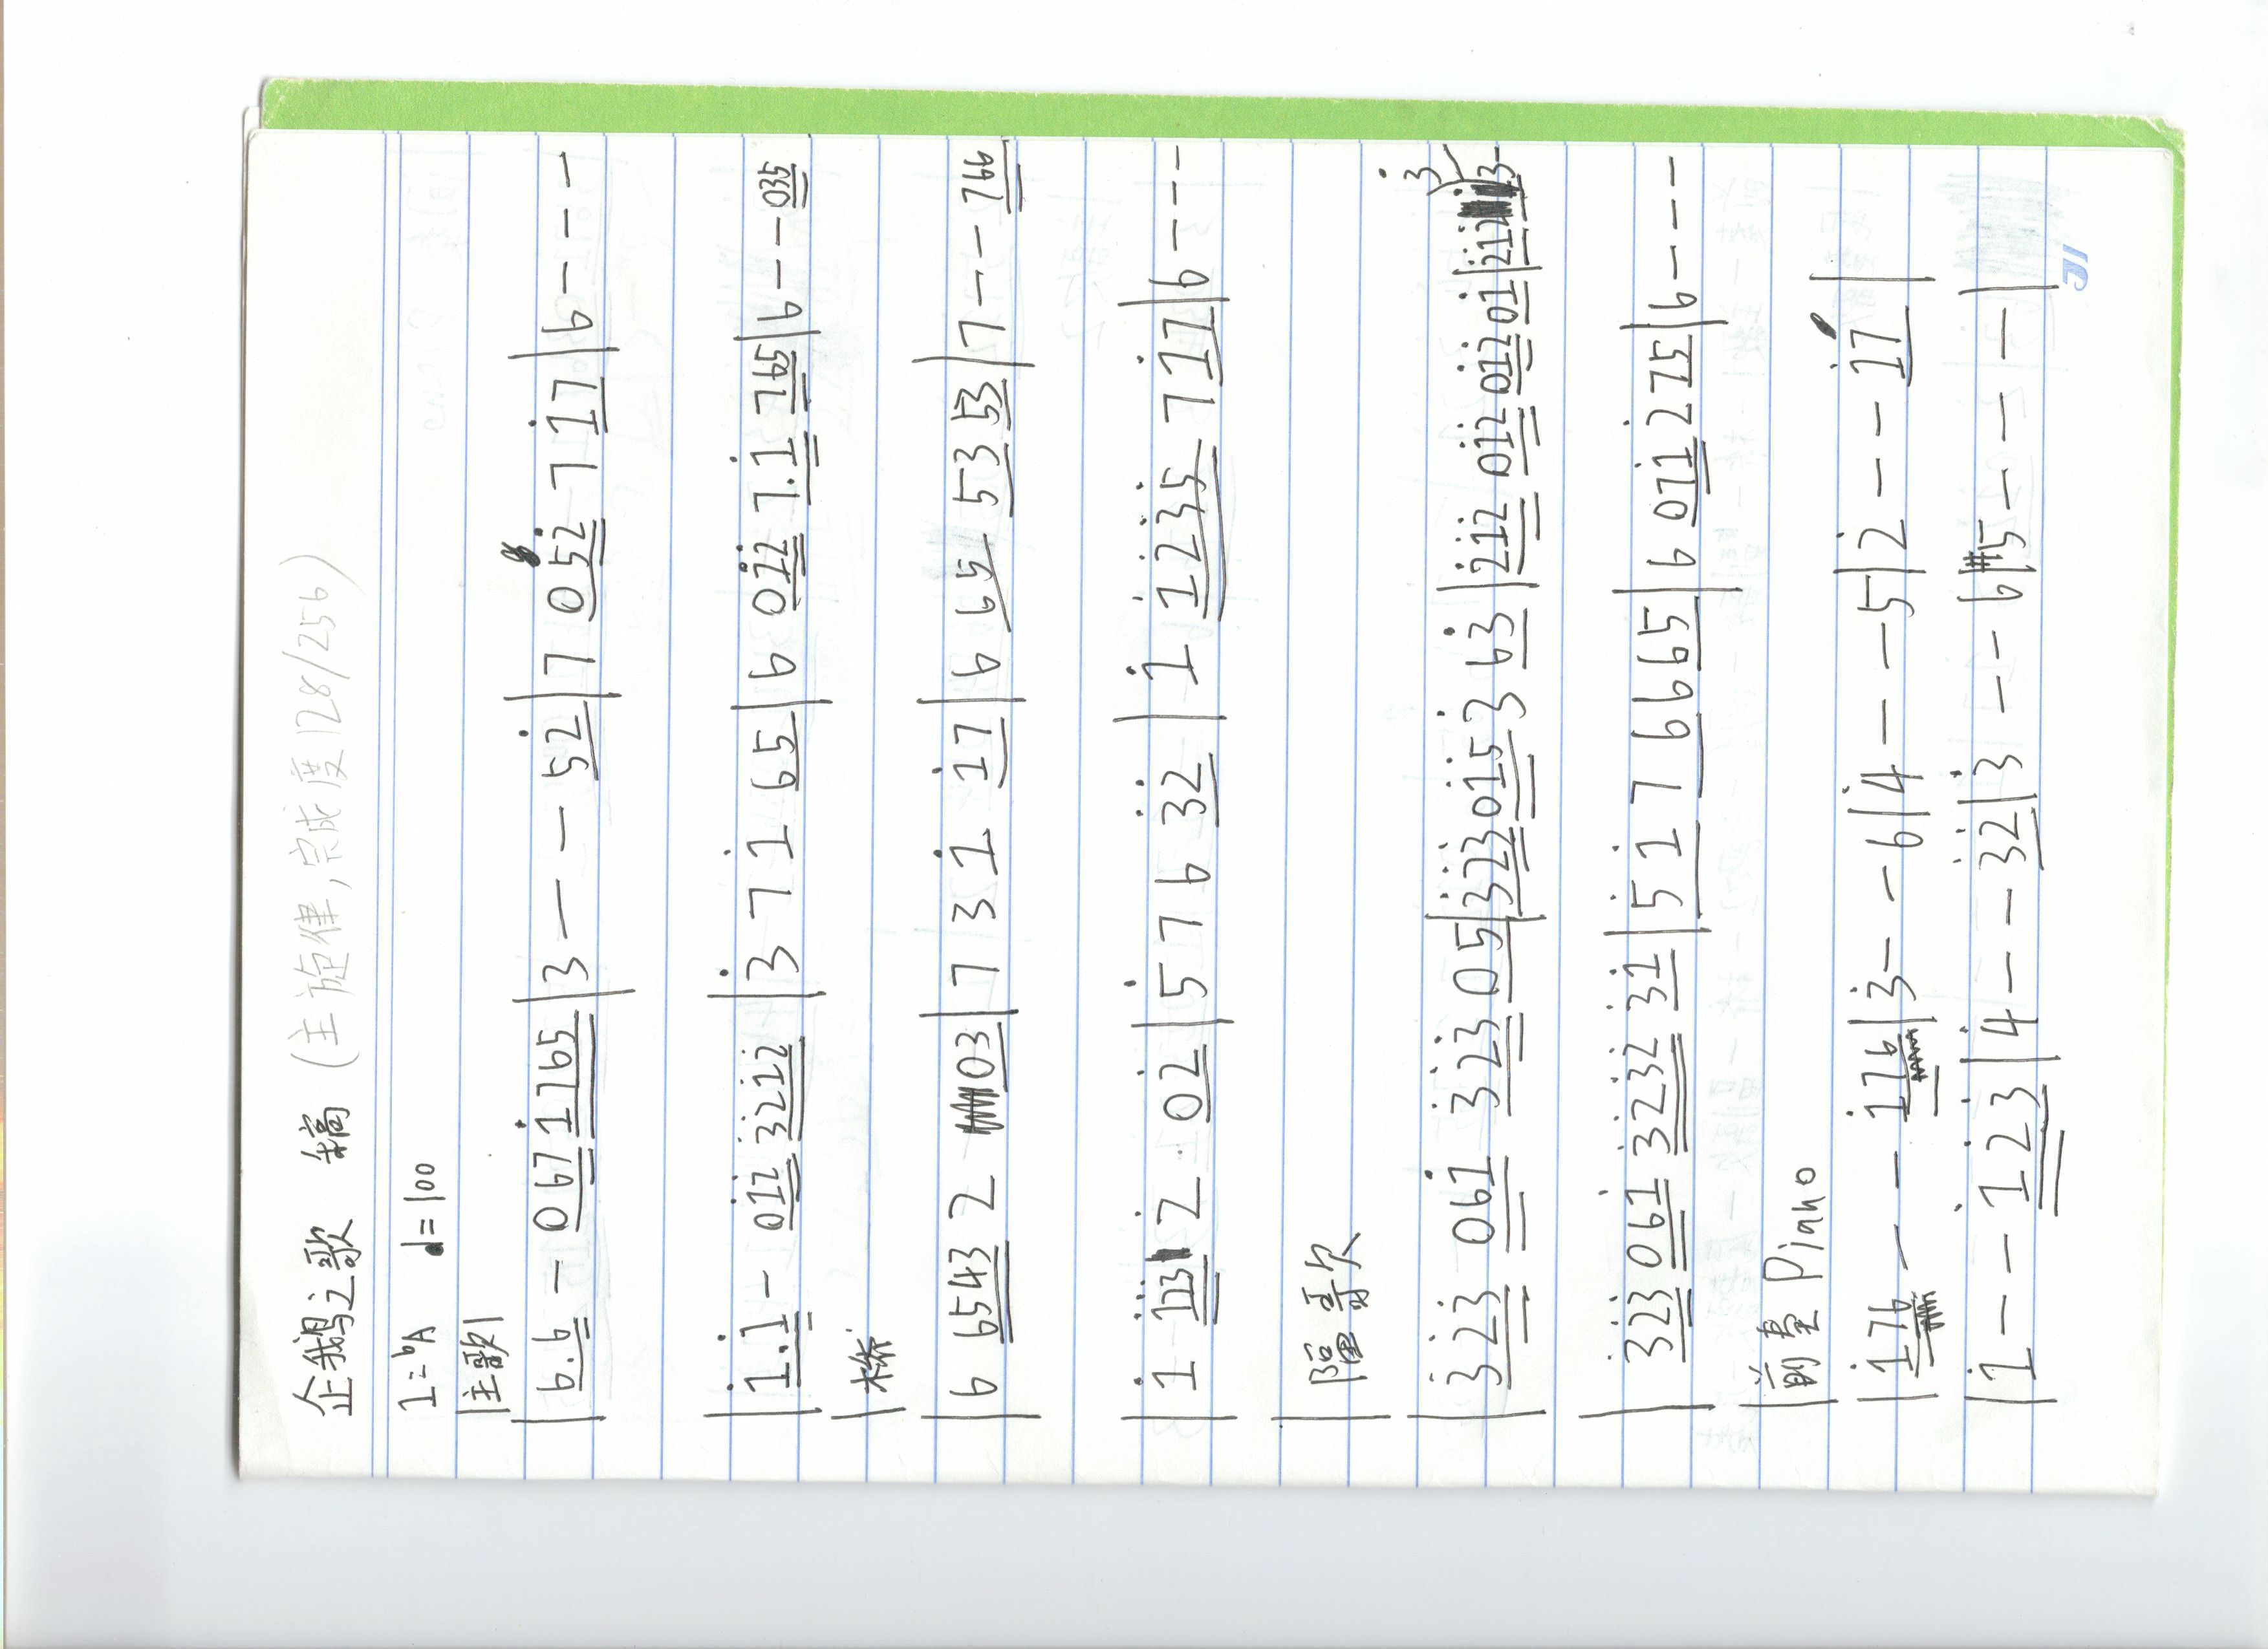 企鹅之歌 编高 (主旋律,完成度128/256)
1=bA ♩=100
|主歌|
|6.6 - 067 1̇765|3 - - 52̇|7 052̇ 7 1̇7|6 - - -
|1̇.1̇ - 01̇2̇ 3̇2̇1̇2̇|3̇ 7 1̇ 65|6 01̇2̇ 7.1̇ 765|6 - - 035
|桥
|6 6543 2 03|7 3 1̇ 1̇7|6 65 53 53|7 - - 766
|1̇ - 1̇1̇3̇ 2̇ 02|5 7 6 3̇2̇|1̇ 1̇2̇3̇5̇ 7 1̇7|6 - - -
3̇2̇3̇ 061̇ 3̇2̇3̇ 05|3̇2̇3̇ 01̇5̇ 3̇ 63̇|2̇1̇2̇ 01̇2̇ 01̇2̇ 01̇|2̇1̇
3̇2̇3̇ 061̇ 3̇2̇3̇2̇ 3̇1̇|5̇ 1̇ 7 6 665|6 071̇ 2̇75|6 - - -
|前奏 Piano
|1̇76 - - 1̇76|3̇ - - 6|4̇ - - 5|2̇ - - 1̇7|
|1̇ - - 1̇2̇3̇|4̇ - - 3̇2̇|3̇ - - 6|#5 - - -|